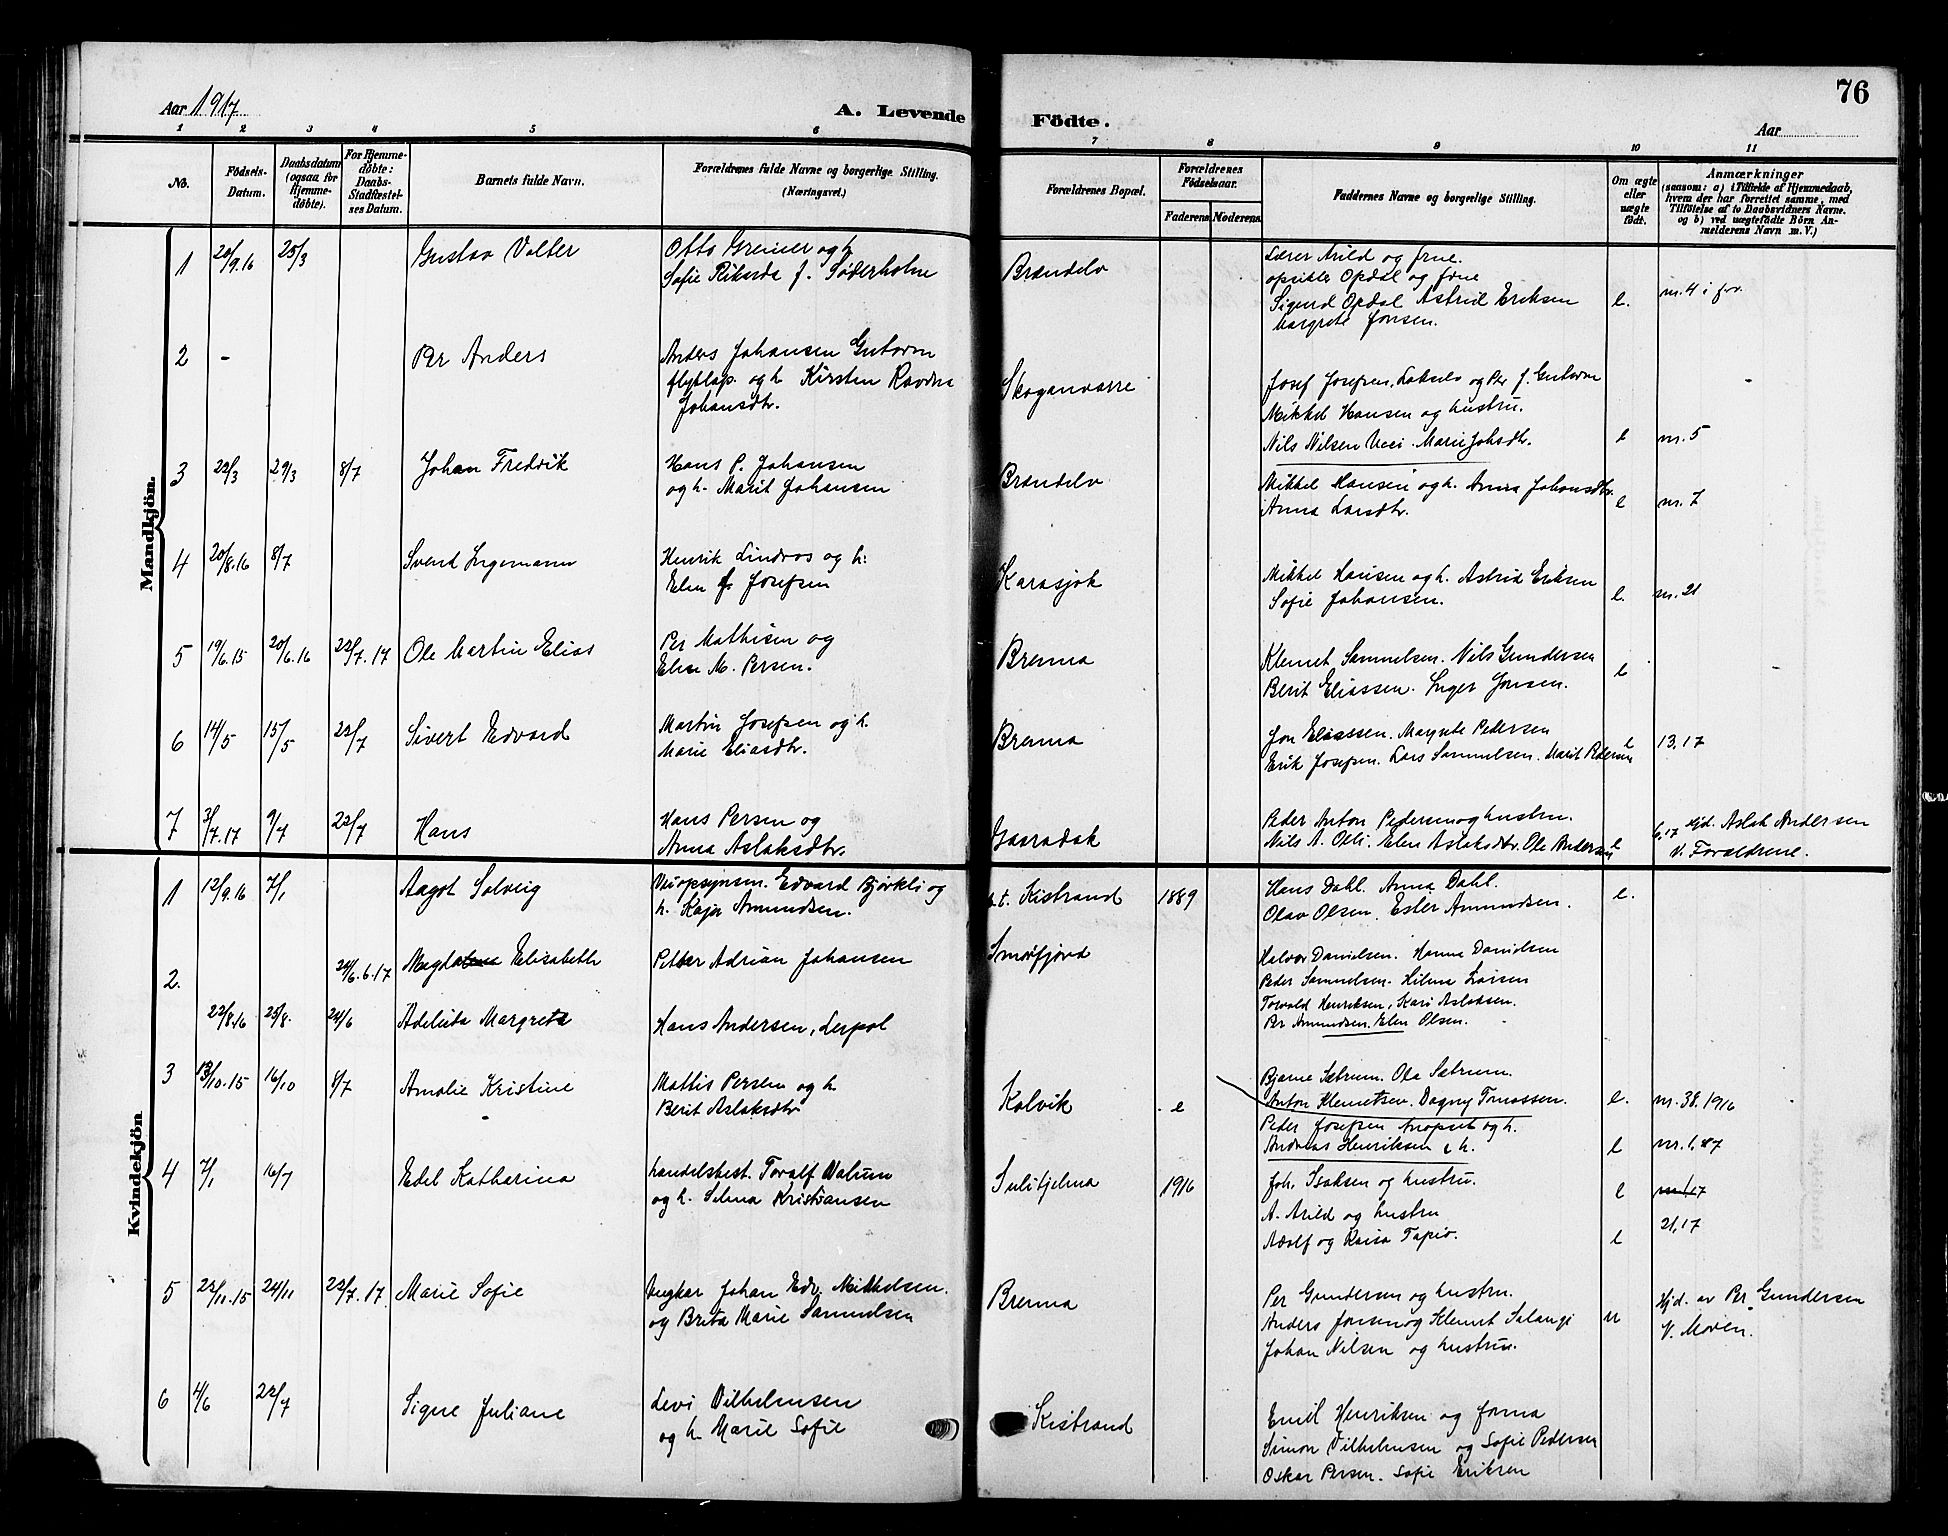 76
Aar 1917
A. Levende Födte.
Aar
1 2 3 4 5 6 7 8 9 10 11
No.
Födsels-
Datum.
Daabsdatum
(ogsaa for
Hjemme-
döbte).
For Hjemme-
döbte:
Daabs-
Stadfæstel-
ses Datum.
Barnets fulde Navn.
Forældrenes fulde Navne og borgerlige Stilling.
(Næringsvei.)
Forældrenes Bopæl.
Forældrenes
Födselsaar.
Faderens. Moderens.
Faddernes Navne og borgerlige Stilling.
Om ægte
eller
uægte
födt.
Anmærkninger
(saasom: a) i Tilfælde af Hjemmedaab,
hvem der har forrettet samme, med
Tilföielse af to Daabsvidners Navne.
og b) ved uægtefödte Börn An-
melderens Navn m. V.)
Mandkjön.
1 20/9.16 25/3 Gustav Valter
Otto Greiner og h
Sofie Rikarda f. Søderholm
Brændelv
Lærer Arild og frue.
opsitter Opdal og frue
Sigurd Opdal Astrid Eriksen
Margrete Jonsen.
e. nr. 4 i for.
2 - Per Anders
Anders Johansen Gutorm
flytlap. og h. Kirsten Ravdna
Johansdtr.
Skoganvarre
Josef Josefsen, Lakselv og Per J. Gutorm
Mikkel Hansen og hustru.
Nils Nilsen Marie Johsdtr.
e nr. 5
3 22/3 29/3 8/7 Johan Fredrik
Hans P. Johansen
og h. Marit Johansen
Brændelv
Mikkel Hansen og h. Anna Johansdtr.
Anna Larsdtr.
e nr. 7
4 20/8.16 8/7 Svend Ingemann
Henrik Lindros og h:
Elen f. Josefsen
Karasjok
Mikkel Hansen og h. Astrid Eriksen
Sofie Johansen.
e. nr. 21
5 19/6.15 20/6.16 22/7.17 Ole Martin Elias
Per Mathisen og
Elen M. Persen.
Brenna
Klemet Samuelsen. Nils Gundersen
Berit Eliassen. Inger Jonsen.
e
6 14/5 15/5 22/7 Sivert Edvard
Martin Josefsen og h.
Marie Eliasdtr.
Brenna
Jon Eliassen. Margrete Pedersen
Erik Josefsen. Lars Samuelsen. Marit Pedersen
e 13.17
7 3/7.17 9/7 22/7 Hans
Hans Persen og
Anna Aslaksdtr.
Gaaradak
Peder Anton Pedersen og hustru.
Nils A. Olli. Elen Aslaksdtr. Ole Andersen
e 6.17 Hjd. Aslak Andersen
V. Forældrene.
Kvindekjön
1 12/9.16 7/1 Aagot Solveig
Veiopsynsm. Edvard Bjørkli og
h. Kaja Amundsen.
p.t. Kistrand 1889
Hans Dahl. Anna Dahl.
Olav Olsen. Ester Amundsen.
e.
2. 24/6.6.17 Magda Elisabeth
Petter Adrian Johansen
Smørfjord
Halvor Danielsen. Hanna Danielsen
Peder Samuelsen. Hilma Larsen
22/8.16 25/8. 24/6 Adeleida Margrete
Hans Andersen, Lerpol
Torvald Henriksen, Kari Aslaksen.
Per Amundsen. Elen Olsen.
3 13/10.15 16/10 1/7 Amalie Kristine
Mattis Persen og h.
Berit Aslaksdtr
Kolvik e
Bjarne Sætrum. Ola Sætrum.
Anton Klemetsen. Dagny Tmassen.
e. nr. 38.1916
Peder Josefsen og h.
Andreas Henriksen & h.
e nr. 1,87
4 7/1 16/7 Edel Katharina
handelsbest. Toralf Valum
og h. Selma Kristiansen
Sulitjelma 1916
Joh. Isaksen og hustru.
e nr. 1.17
A. Arild og hustru
Adolf og Raisa Tapio.
e 21,17
5 22/11.15 24/11 22/7.17 Marie Sofie
Ungkar Johan Edv. Mikkelsen.
og Brita Marie Samuelsen
Brenna
Per Gundersen og hustru.
Anders Jonsen og Klemet Salangi
Johan Nilsen og hustru.
u Hjd. av Per Gundersen
V. Moren.
6 4/6 22/7 Signe Juliane
Levi Vilhelmsen
og h. Marie Sofie
Kistrand
Emil Henriksen og Jonna
Simon Vilhelmsen og Sofie Pedersen
Oskar Persen. Sofie Eriksen